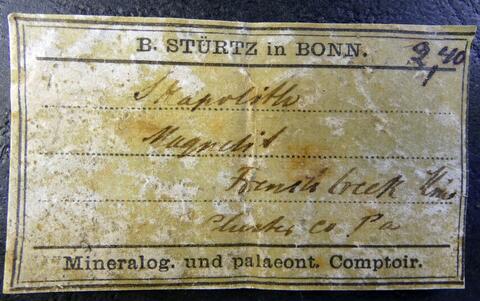 B. STÜRTZ in BONN.
Skapolith
Magnetit
French Creek
Chester co Pa
Mineralog. und palaeont. Comptoir.